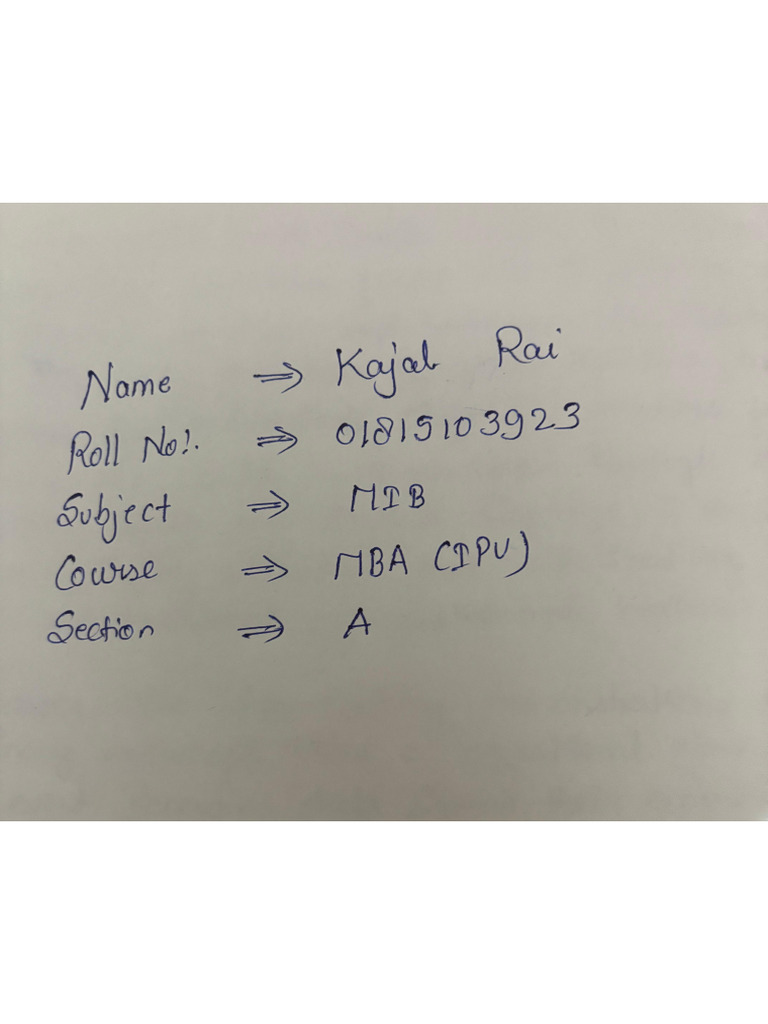 Name ⇒ Kajal Rai
Roll No!. ⇒ 01815103923
Subject ⇒ MIB
Course ⇒ MBA (IPU)
Section ⇒ A